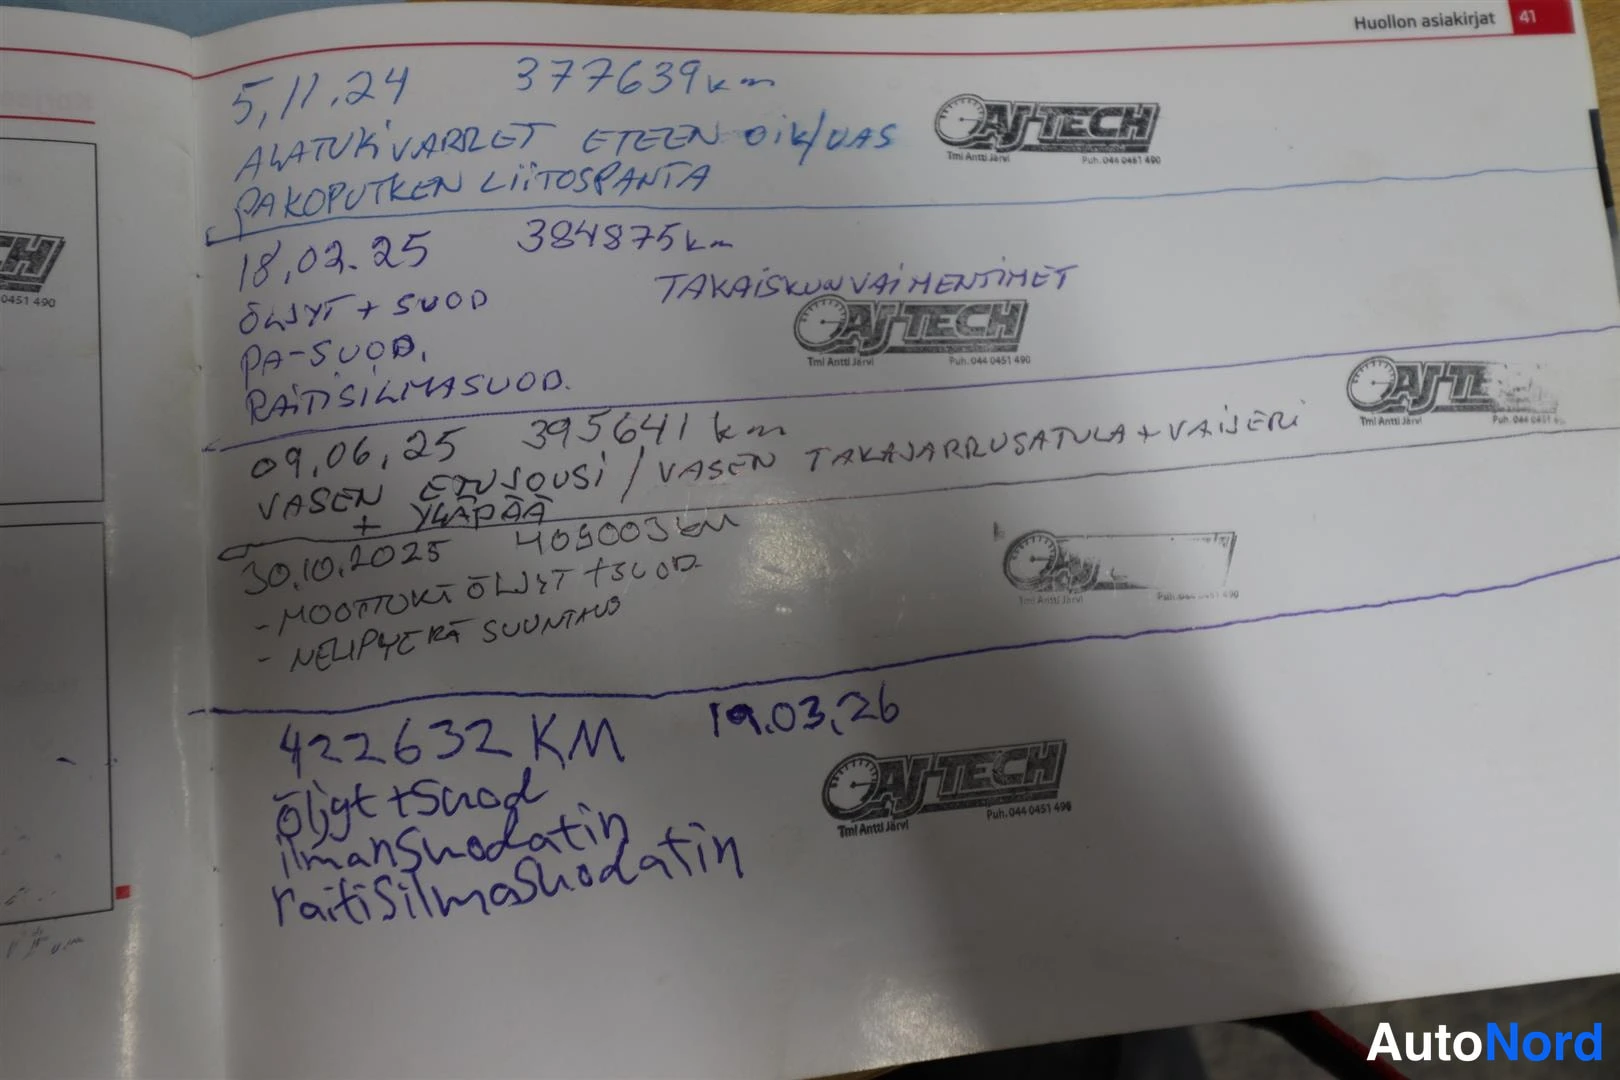 Huollon asiakirjat 41
5,11.24 377639 km
ALATUKIVARRET ETEEN OIK/VAS
PAKOPUTKEN LIITOSPANTA
AJ-TECH
Tmi Antti Järvi Puh. 044 0451 490
18,02.25 384875 km
ÖLJYT + SUOD
TAKAISKUNVAIMENTIMET
PA-SUOD.
RAITISILMASUOD.
AJ-TECH
Tmi Antti Järvi Puh. 044 0451 490
09,06,25 395641 km
VASEN ETUJOUSI / VASEN TAKAJARRUSATULA + VAIJERI
+ YLÄPÄÄ
AJ-TE
Tmi Antti Järvi Puh. 044 0451
30.10.2025 409003 KM
- MOOTTORI ÖLJYT + SUOD.
- NELIPYÖRÄ SUUNTAUS
Tmi Antti Järvi Puh. 044 0451 490
422632 KM 19.03.26
öljyt + Suod
ilmansuodatin
raitisilmasuodatin
AJ-TECH
Tmi Antti Järvi Puh. 044 0451 490
CH
0451 490
AutoNord